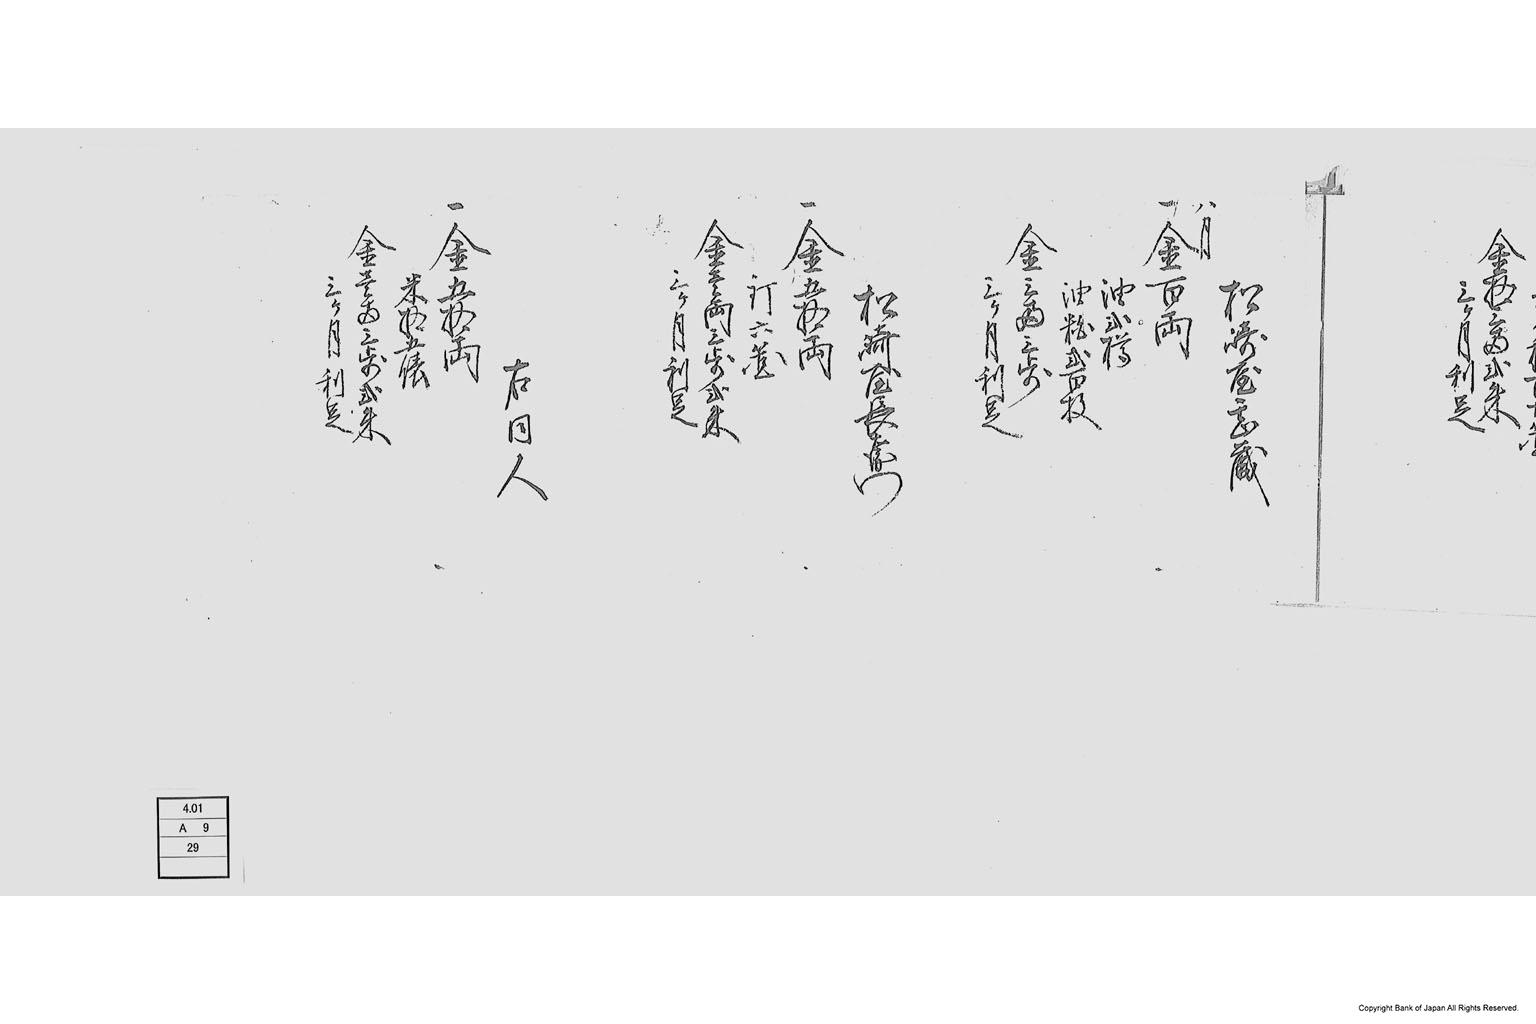 金拾六両弐朱
三ヶ月利足
松崎屋
八月
一金百両
油弐樽
油粕弐百枚
金三両三歩
三ヶ月利足
松崎屋長右衛門
一金五拾両
釘六箇
金壱両三歩弐朱
三ヶ月利足
右同人
一金五拾両
米拾五俵
金壱両三歩弐朱
三ヶ月利足
4.01
A 9
29
Copyright Bank of Japan All Rights Reserved.